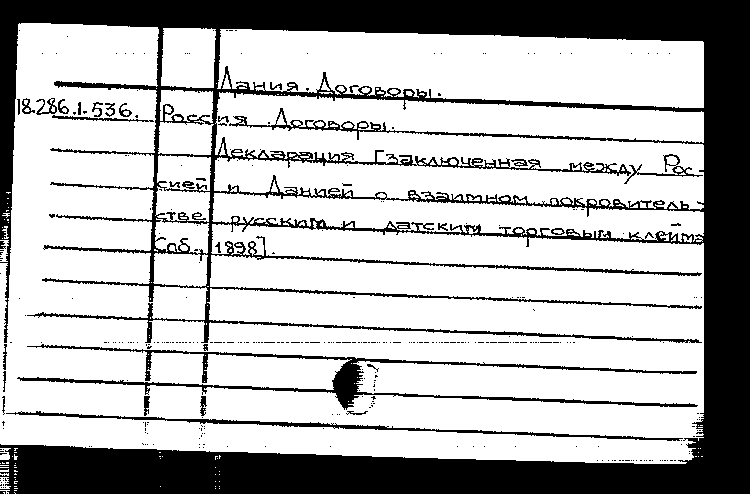 Дания. Договоры.
18.286.1.536. Россия. Договоры.
Декларация [заключенная между Рос-
сией и Данией о взаимном покровитель-
стве русским и датским торговым клейма
Спб., 1898].